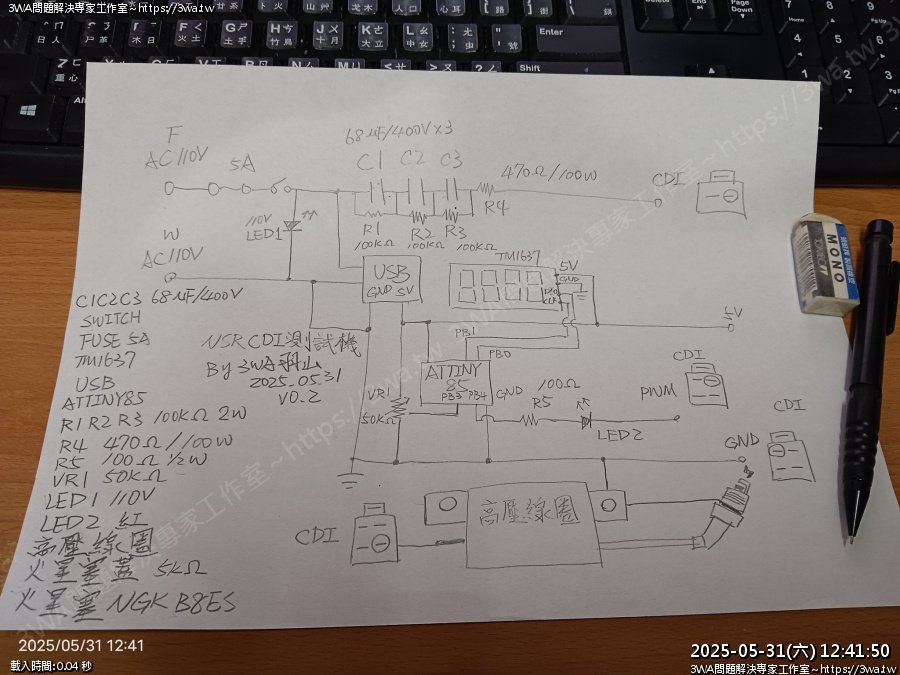 3WA問題解決專家工作室~https://3wa.tw
F
AC110V
5A
68µF/400V×3
C1 C2 C3
470Ω/100W
R4
CDI
110V
LED1
R1 R2 R3
100KΩ 100KΩ 100KΩ
W
AC110V
USB
GND 5V
TM1637
5V
GND
DIO
CLK
5V
C1C2C3 68µF/400V
SWITCH
FUSE 5A
TM1637
USB
ATTINY85
R1 R2 R3 100KΩ 2W
R4 470Ω/100W
R5 100Ω 1/2W
VR1 50KΩ
LED1 110V
LED2 紅
高壓線圈
火星塞蓋 5KΩ
火星塞 NGK B8ES
NSR CDI測試機
By 3WA羽山
2025.05.31
V0.2
PB1
PB0
ATTINY
85
PB3 PB4
GND
VR1
50KΩ
100Ω
R5
LED2
PWM
CDI
CDI
GND
CDI
高壓線圈
Enter
Shift
Alt
End
Page
Down
Home
MONO
2025/05/31 12:41
載入時間:0.04 秒
2025-05-31(六) 12:41:50
3WA問題解決專家工作室~https://3wa.tw